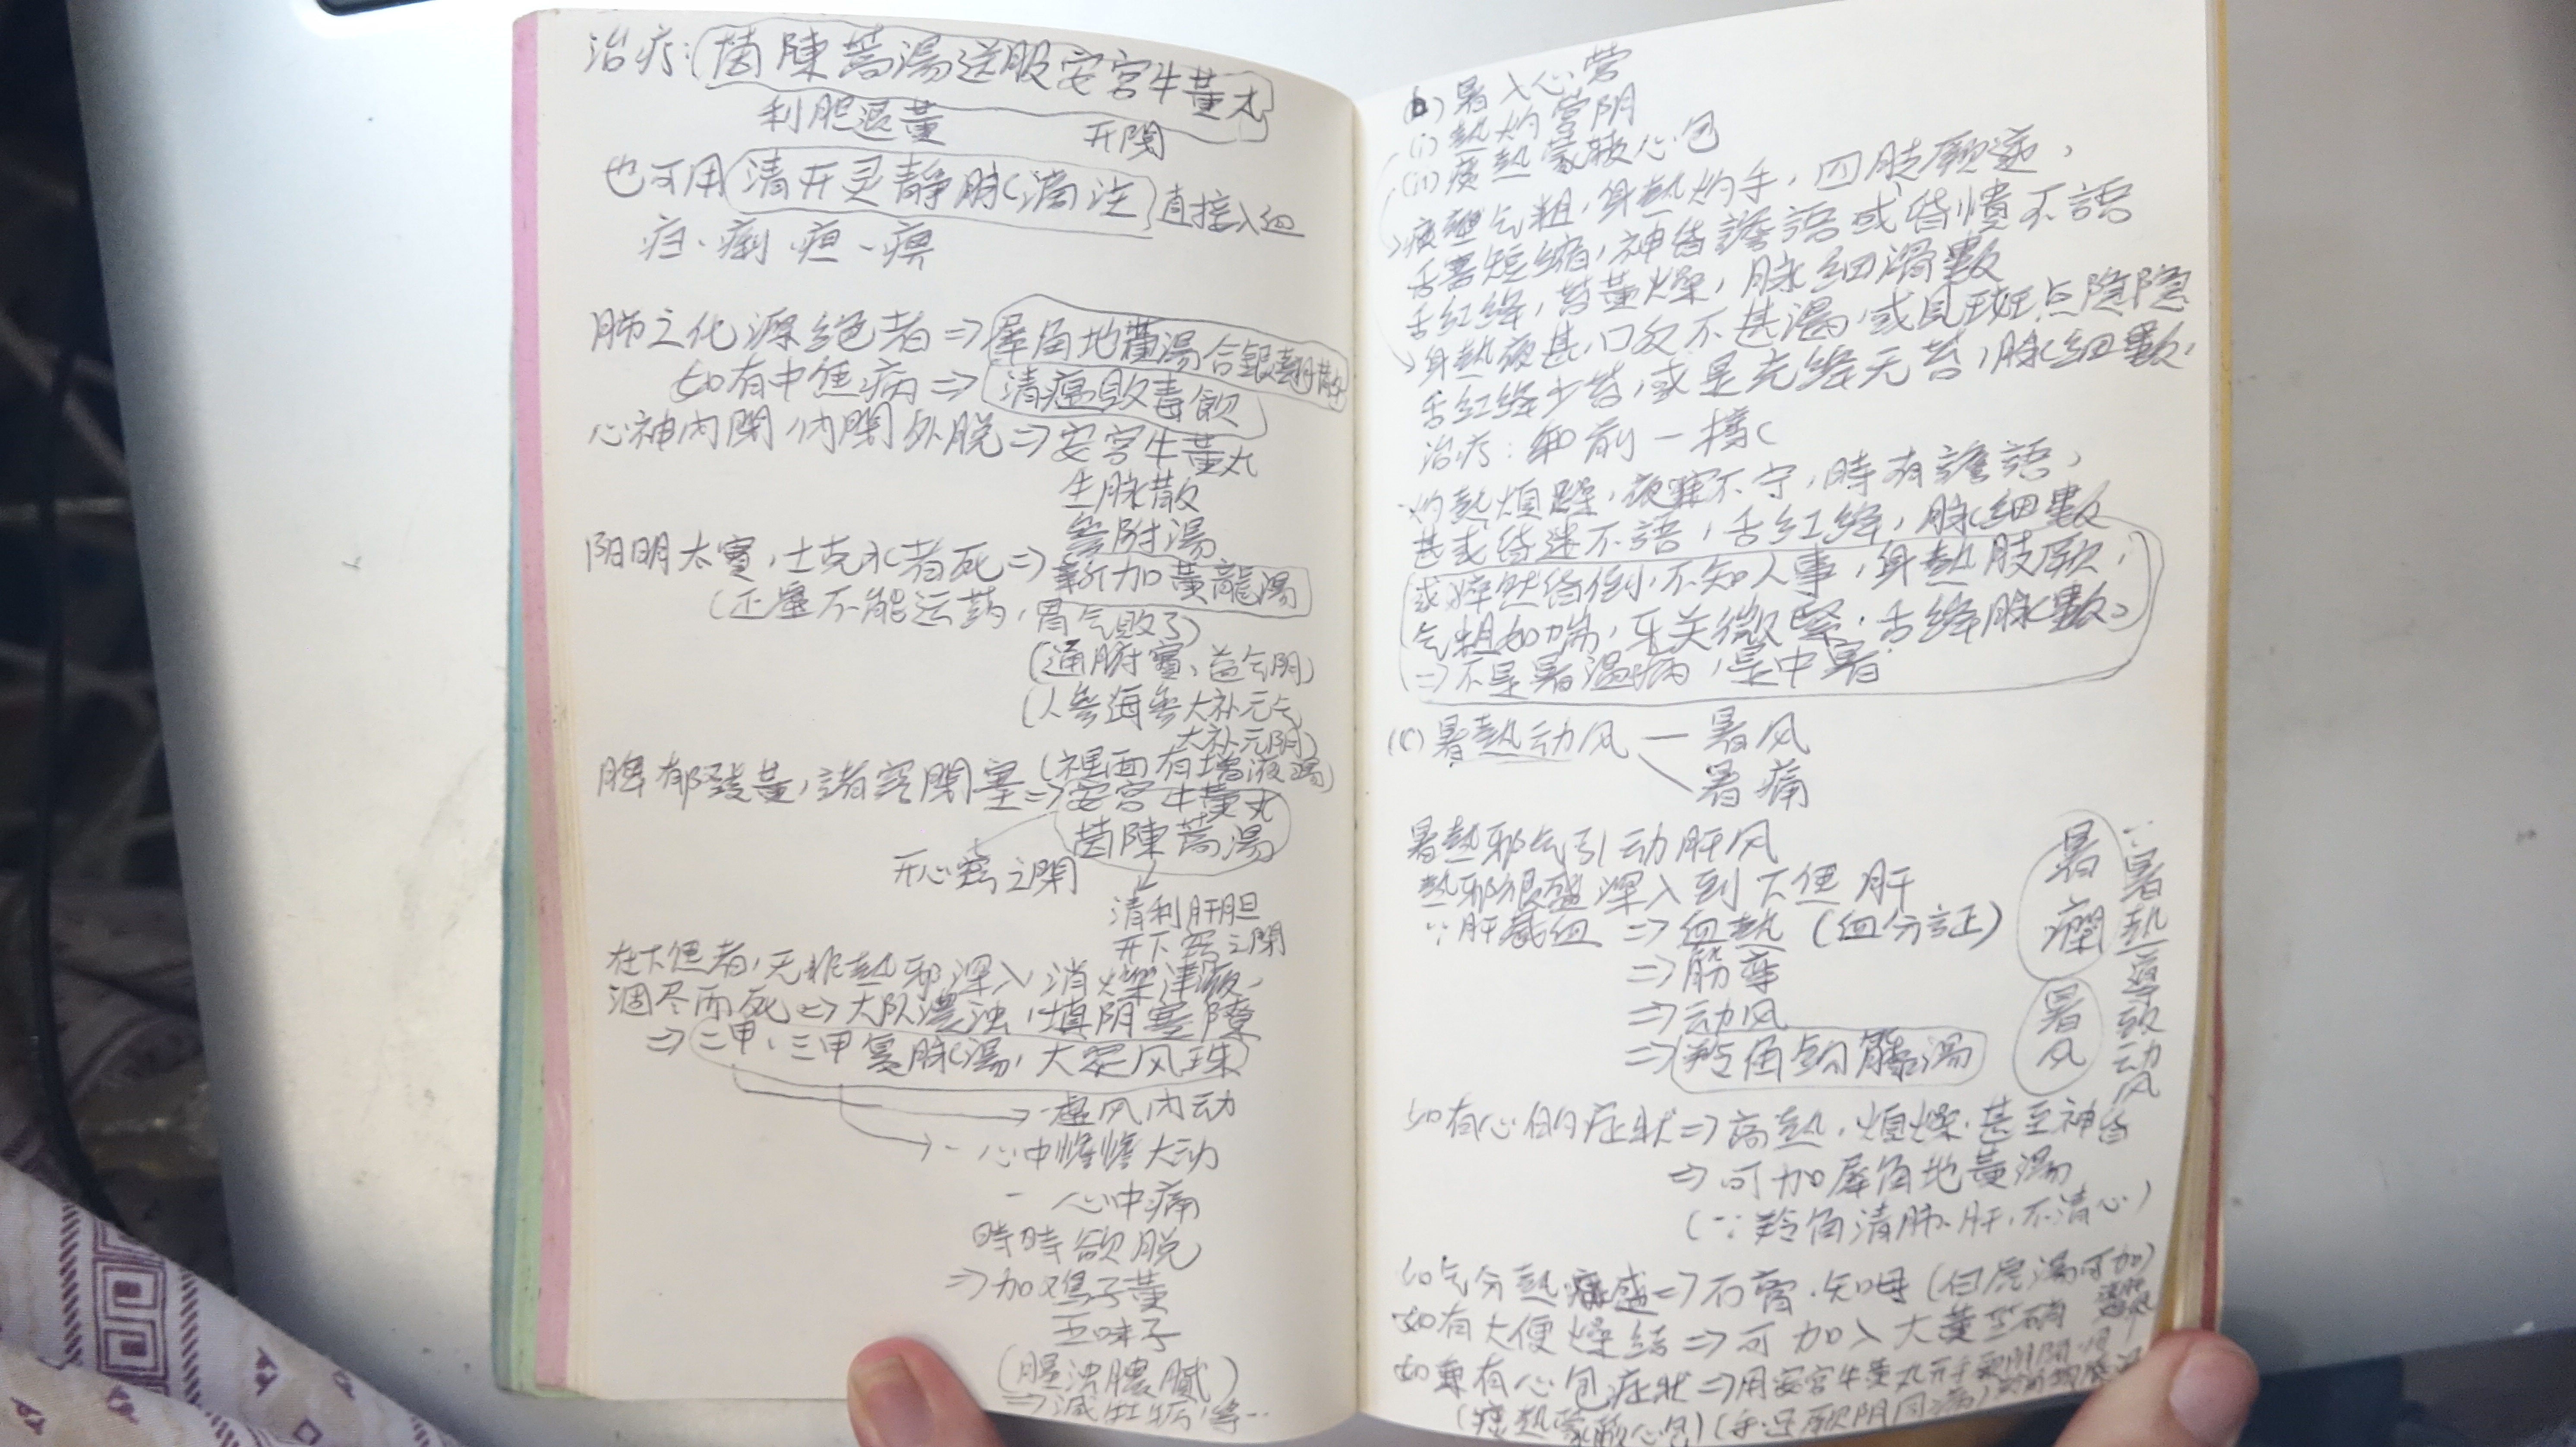 治疗:茵陳蒿湯送服安宮牛黃丸
利胆退黃 开閉
也可用清开灵静脉滴注 直接入血
疸、疸、痹
肺之化源絕者⇒犀角地黃湯合銀翹散
如有中焦病⇒清瘟敗毒飲
心神內閉/內閉外脱⇒安宮牛黃丸
生脉散
參附湯
阳明太實,土克水者死⇒新加黃龍湯
(正虛不能运药,胃气敗了)
(通腑實、益气阴)
(人參海參大补元气
大补元阴)
(裡面有增液湯)
脾郁發黃,諸窍閉塞⇒安宮牛黃丸
茵陳蒿湯
开心窍之閉
清利肝胆
开下窍之閉
在下焦者,无非熱邪深入,消爍津液,
涸尽而死⇒大队濃浊,填阴塞隙
⇒二甲、三甲复脉湯,大定风珠
虛风內动
-心中憺憺大动
-心中痛
時時欲脱
⇒加鸡子黃
五味子
(腥浊膿膩)
⇒減牡蛎等…
(b)暑入心營
(i)熱灼營阴
(ii)痰熱蒙蔽心包
痰壅气粗,身熱灼手,四肢厥逆,
舌蹇短縮,神昏譫語或昏憒不語
舌红絳,苔黃燥,脉細滑數
身熱夜甚,口反不甚渴,或見斑点隐隐
舌红絳少苔,或是光絳无苔,脉細數.
治疗:和前一樣
灼熱煩躁,夜寐不宁,時有譫語,
甚或昏迷不語,舌红絳,脉細數
或猝然昏倒,不知人事,身熱肢厥,
气粗如喘,牙关微緊,舌絳脉數。
⇒不是暑溫病,是中暑
(c)暑熱动风—暑风
暑痫
暑熱邪气引动肝风
熱邪很盛深入到下焦肝
∵肝藏血⇒血熱(血分証)
⇒筋挛
⇒动风
⇒羚角鈎藤湯
暑癇
暑风
∵暑熱導致动风
如有心的症狀⇒高熱,煩燥,甚至神昏
⇒可加犀角地黃湯
(∵羚角清肺、肝,不清心)
如气分熱盛⇒石膏、知母(白虎湯可加)
如有大便燥結⇒可加入大黃芒硝
如兼有心包症狀⇒用安宮牛黃丸
(痰熱蒙蔽心包)